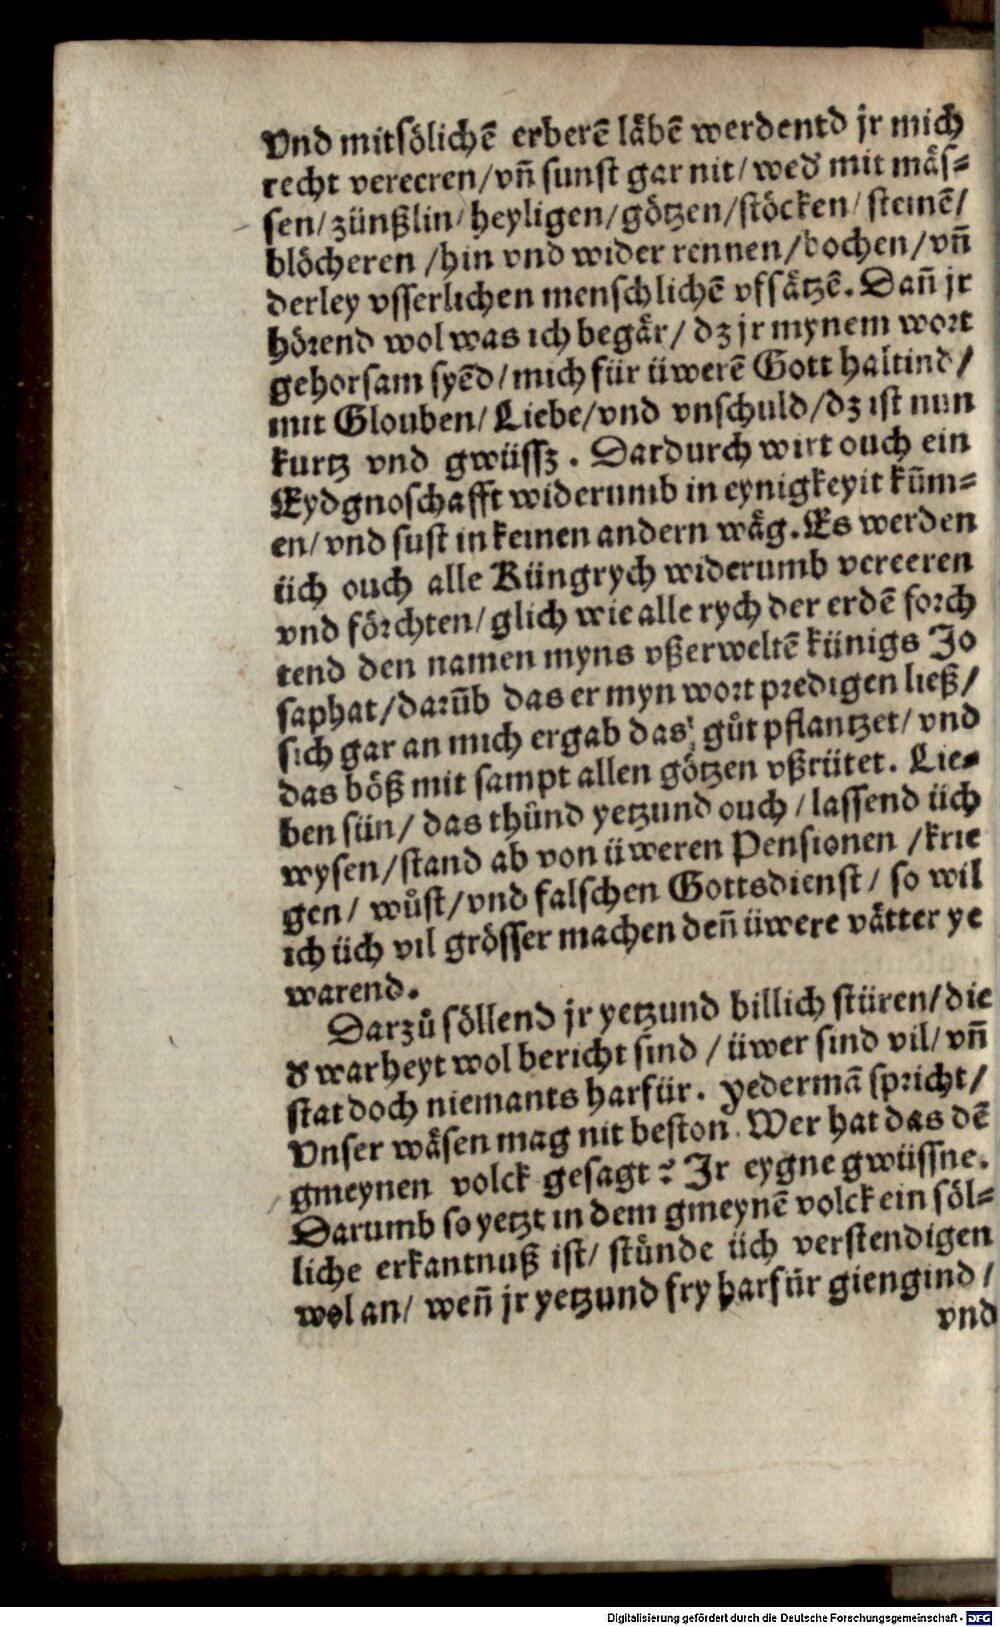 Vnd mitsölichē erberē läbē werdentd jr mich
recht vereeren/vñ sunst gar nit/wed' mit mäs-
sen/zünßlin/heyligen/götzen/stöcken/steinē/
blöcheren/hin vnd wider rennen/bochen/vñ
derley vsserlichen menschlichē vfsätzē. Dañ jr
hörend wol was ich begär/dz jr mynem wort
gehorsam syēd/mich für üwerē Gott haltind/
mit Glouben/Liebe/vnd vnschuld/dz ist nun
kurtz vnd gwüssz. Dardurch wirt ouch ein
Eydgnoschafft widerumb in eynigkeyit kūm-
en/vnd sust in keinen andern wäg. Es werden
üch ouch alle Küngrych widerumb vereeren
vnd förchten/glich wie alle rych der erdē forch
tend den namen myns vßerweltē künigs Jo
saphat/darūb das er myn wort predigen ließ/
sich gar an mich ergab das gůt pflantzet/vnd
das böß mit sampt allen götzen vßrütet. Lie-
ben sün/das thůnd yetzund ouch/lassend üch
wysen/stand ab von üweren Pensionen/krie
gen/wůst/vnd falschen Gottsdienst/so wil
ich üch vil grösser machen deñ üwere vätter ye
warend.
Darzů söllend jr yetzund billich stüren/die
d' warheyt wol bericht sind/üwer sind vil/vñ
stat doch niemants harfür. yedermā spricht/
Vnser wäsen mag nit beston. Wer hat das dē
gmeynen volck gesagt? Jr eygne gwüssne.
Darumb so yetzt in dem gmeynē volck ein söl-
liche erkantnuß ist/stünde üch verstendigen
wol an/weñ jr yetzund fry harfür giengind/
vnd
Digitalisierung gefördert durch die Deutsche Forschungsgemeinschaft - DFG